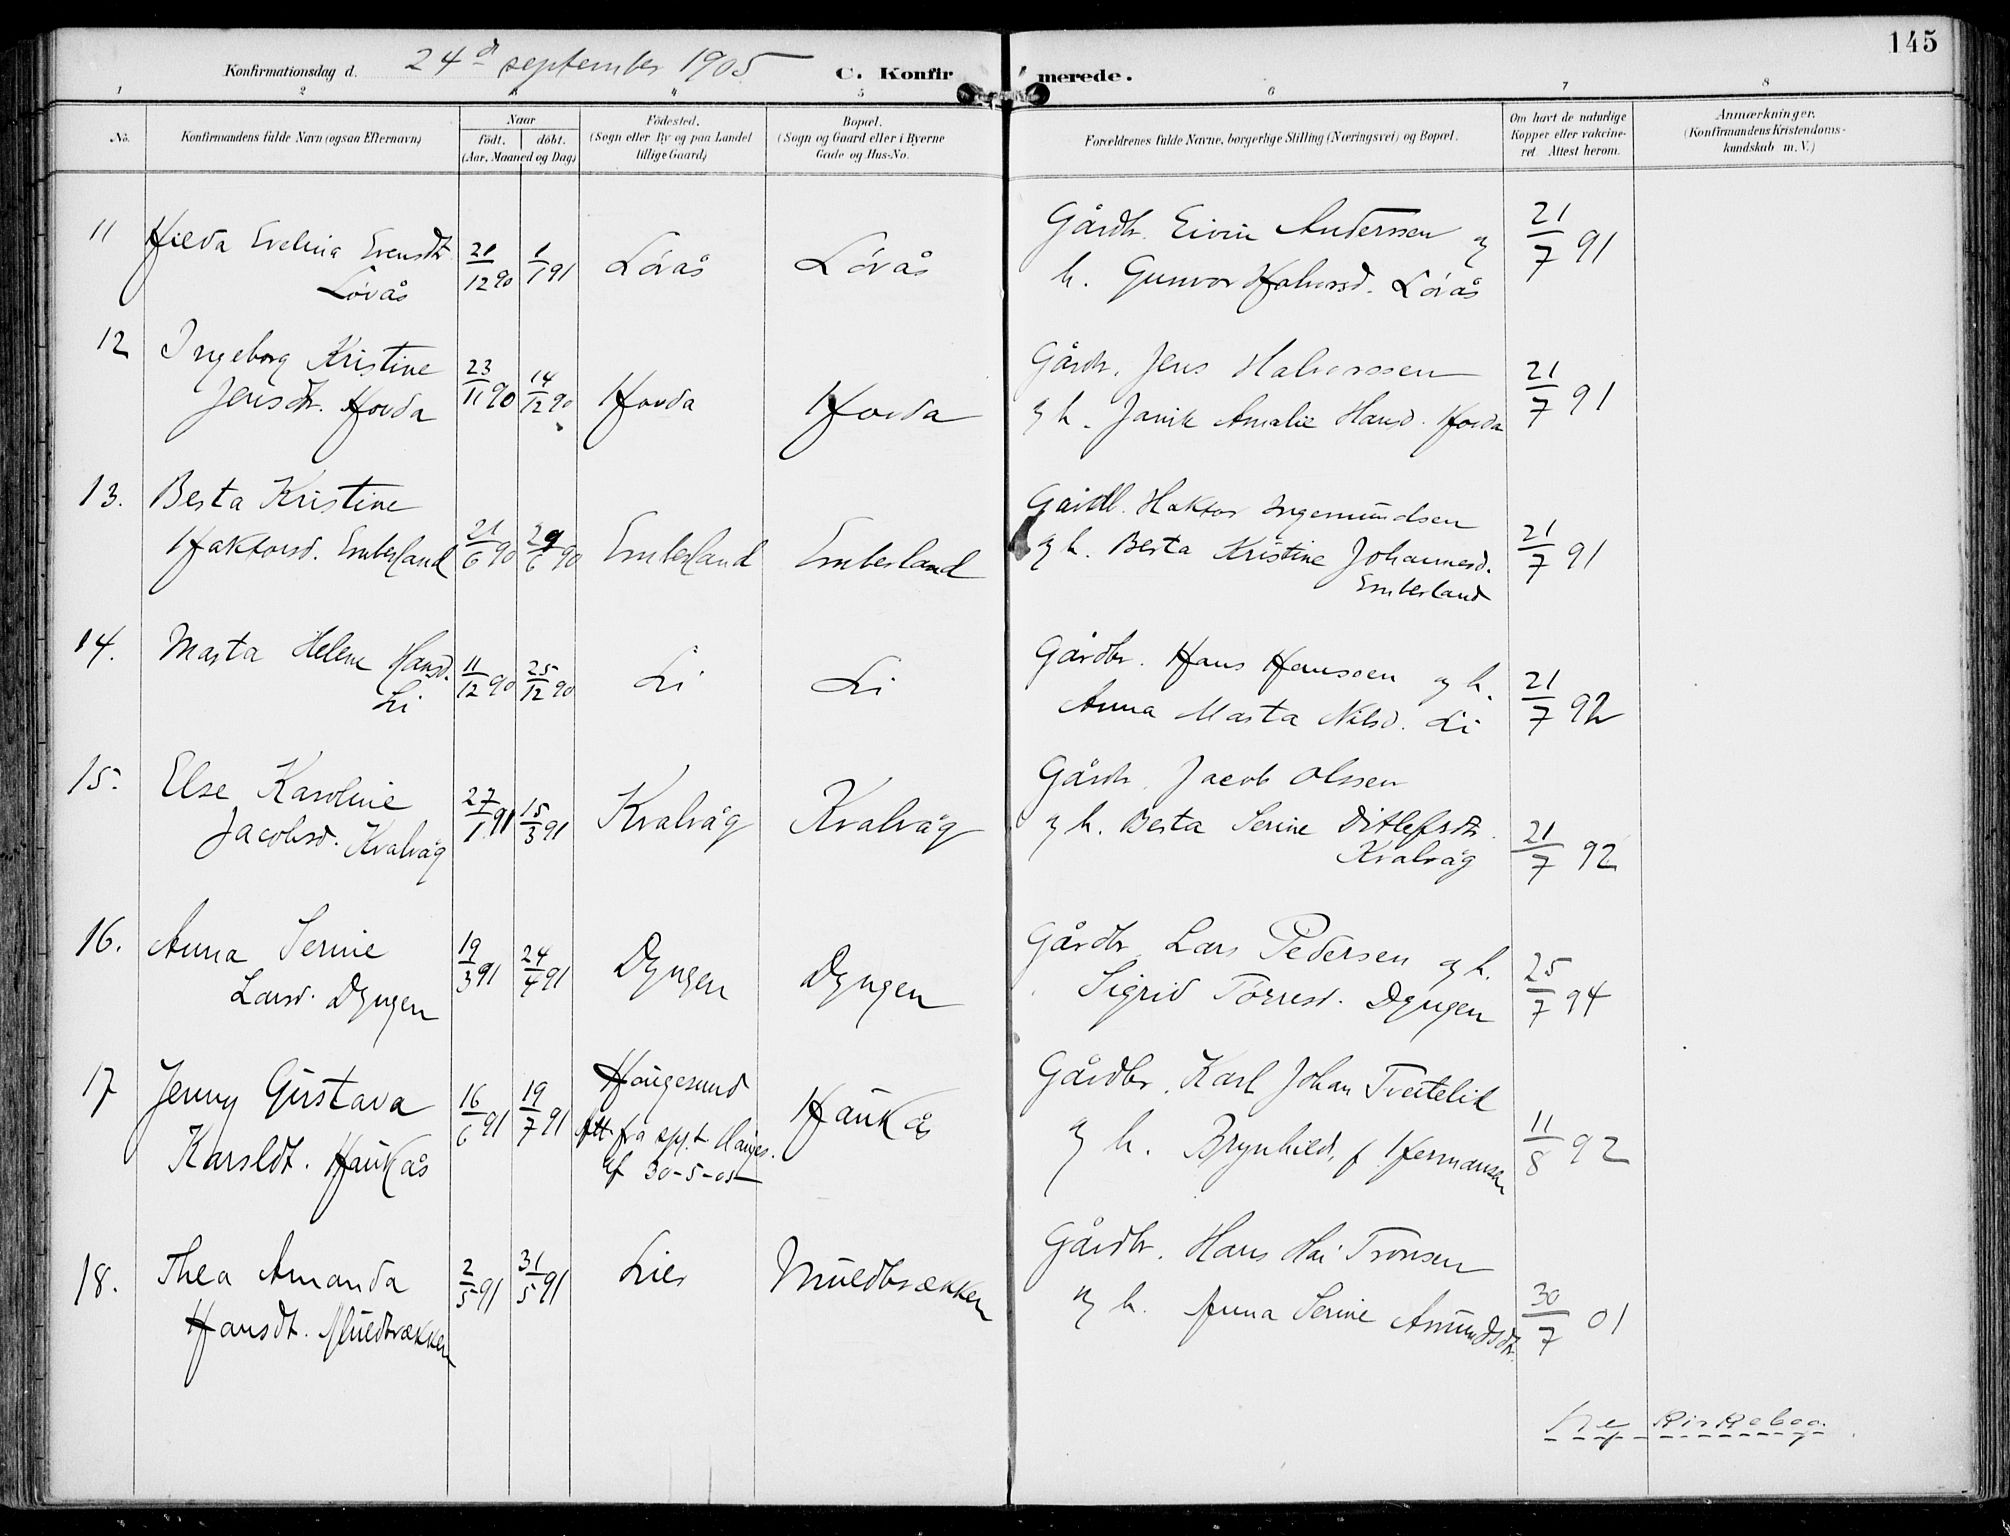 145
Konfirmationsdag d. 24d september 1905
C. Konfirmerede.
1 2 3 4 5 6 7 8
No.
Konfirmandens fulde Navn (ogsaa Efternavn)
Naar
Født. døbt.
(Aar, Maaned og Dag)
Fødested.
(Sogn eller By og paa Landet
tillige Gaard)
Bopæl.
(Sogn og Gaard eller i Byerne
Gade og Hus-No.
Forældrenes fulde Navne, borgerlige Stilling (Næringsvei) og Bopæl.
Om havt de naturlige
Kopper eller vakcine-
ret. Attest herom.
Anmærkninger.
(Konfirmandens Kristendoms-
kundskab m. V.)
11 Hilda Evelina Evensdtr
Løvås
21/12 90 1/1 91 Løvås Løvås
Gårdbr. Eivin Anderssen og
h. Gunvor Halvorsd. Løvås
21/7 91
12 Ingeborg Kristine
Jensdtr. Hovda
23/11 90 14/12 90 Hovda Hovda
Gårdbr. Jens Halvorssen
og h. Janik Amalie Hansd. Hovda
21/7 91
13. Berta Kristine
Haktorsd. Emberland
21/6 90 29/6 90 Emberland Emberland
Gårdb. Haktor Ingemundsen
og h. Berta Kristine Johannesd.
Emberland
21/7 91
14. Marta Helene Hansd.
Li
11/12 90 25/12 90 Li Li
Gårdbr. Hans Hanssen og h.
Anna Marta Nilsd. Li
21/7 92
15. Else Karoline
Jacobsd. Kvalvåg
27/1 91 15/3 91 Kvalvåg Kvalvåg
Gårdbr. Jacob Olssen
og h. Berta Serine Ditlefsdtr.
Kvalvåg
21/7 92
16. Anna Serine
Larsd. Dyngen
19/3 91 24/4 91 Dyngen Dyngen
Gårdbr. Lars Pedersen og h.
Sigrid Tørresd. Dyngen
25/7 94
17 Jenny Gustava
Karsldt. Haukås
16/6 91 19/7 91 Haugesund
Att fra spr. t. Hauges.
af 30-5-05
Haukås
Gårdbr. Karl Johan Tveitelid
og h. Brynhild, f. Hermansen
11/8 92
18. Thea Amanda
Hansdt. Muldbrækken
2/5 91 31/5 91 Lier Muldbrækken
Gårdbr. Hans Hai Tronsen
og h. Anna Serine Amundsdtr.
30/7 01
Kirkebog.